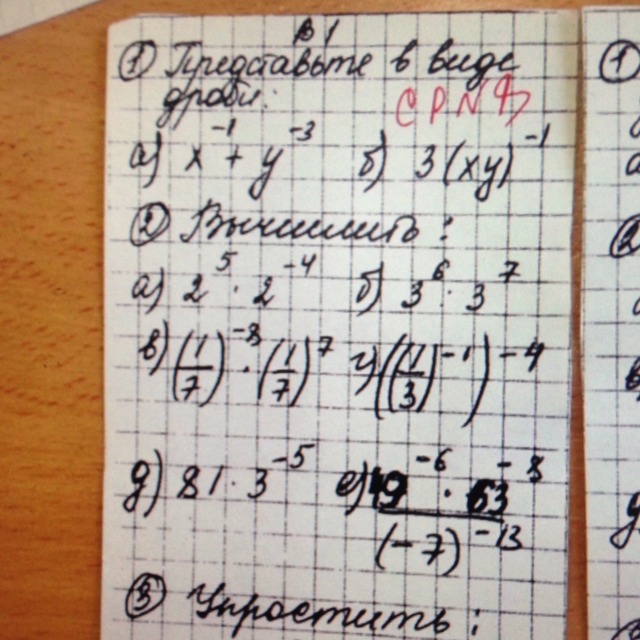 В 1
① Представьте в виде
дроби: СР №9
а) x⁻¹ + y⁻³ б) 3(xy)⁻¹
② Вычислить:
а) 2⁵ · 2⁻⁴ б) 3⁶ : 3⁷
в) (1/7)⁻⁸ · (1/7)⁷ г) ((1/3)⁻¹)⁻⁴
д) 81 · 3⁻⁵
③ Упростить: